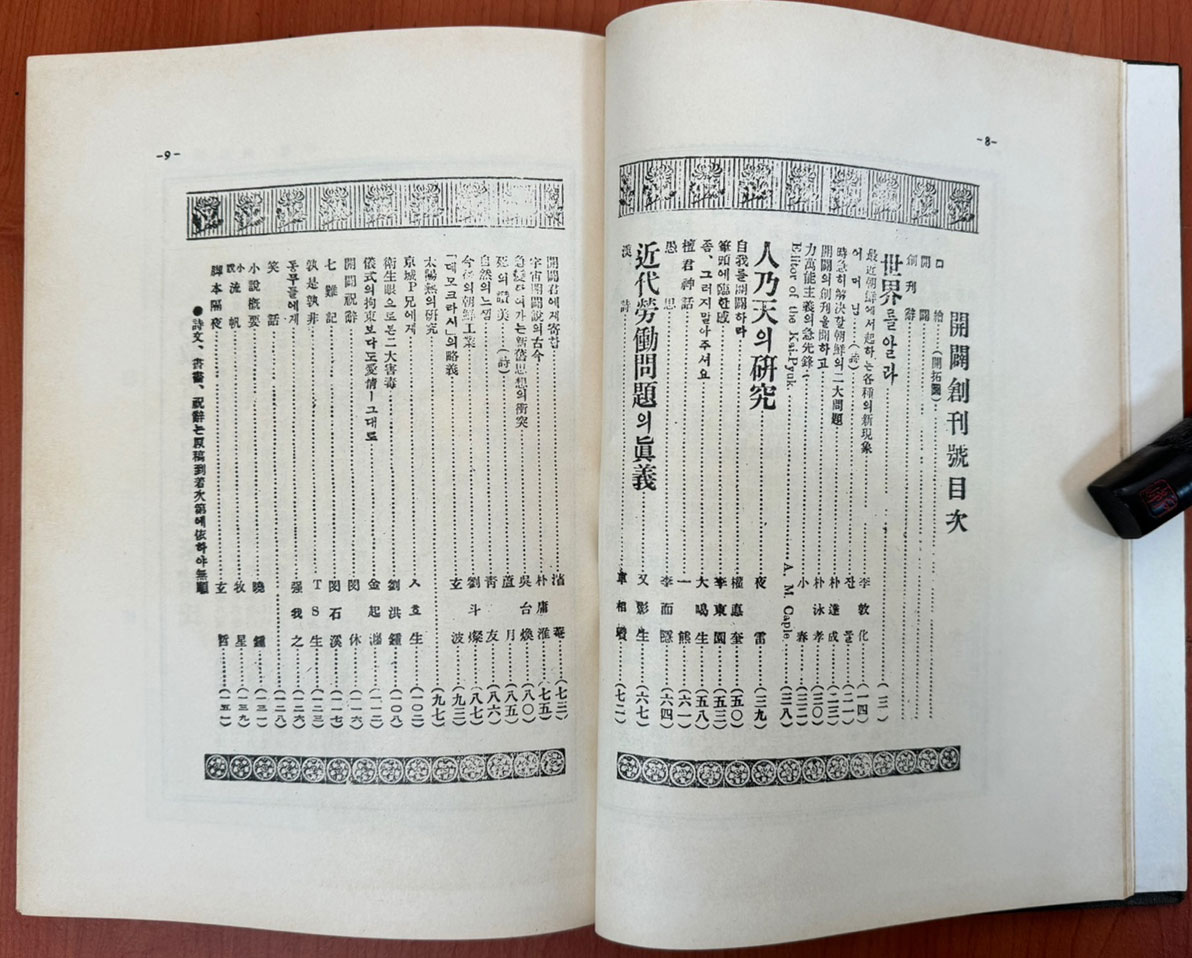 -8-
開闢創刊號目次
口繪(開拓圖)
開闢
創刊辭
世界를알라(三)
最近朝鮮에서起하는各種의新現象 李敦化(一四)
어머님(詩) 잔물(二一)
時急히解決할朝鮮의二大問題 朴達成(二三)
開闢의創刊을聞하고 朴泳孝(三〇)
力萬能主義의急先鋒 小春(三二)
Editor of the Kai-Pyuk. A. M. Caple(三八)
人乃天의硏究 夜雷(三九)
自我를開闢하라 權悳奎(五〇)
筆頭에臨한感 李東園(五三)
좀、그러지말아주서요 大喝生(五八)
檀君神話 一熊(六一)
愚思 李而㦥(六四)
近代勞働問題의眞義 又影生(六七)
漢詩 車相瓚(七二)
-9-
開闢君에게寄함 滄菴(七三)
宇宙開闢說의古今 朴庸淮(七五)
急變하여가는新舊思想의衝突 吳台煥(八〇)
死의讚美(詩) 蘆月(八五)
自然의느낌 靑友(八六)
今後의朝鮮工業 劉斗燦(八七)
「데모크라시」의略義 玄波(九三)
太陽熱의硏究(九七)
京城P兄에게 入호生(一〇三)
衛生眼으로본二大害毒 劉洪鍾(一〇八)
儀式의拘束보다도愛情ー그대로 金起瀍(一一三)
開闢祝辭 閔休(一一六)
七難記 閔石溪(一一七)
孰是孰非 TS生(一二三)
동무들에게 强我之(一二六)
笑話(一二八)
小說槪要 曉鍾(一三一)
小說流帆 牧星(一三九)
脚本隔夜 玄哲(一五一)
●詩文、書畵、祝辭는原稿到着次第에依하야無順